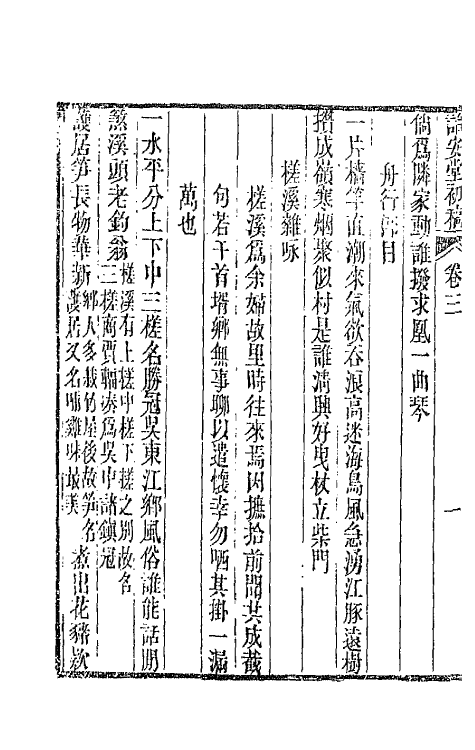 詒安堂初稿 卷三 一
倘爲隣家動誰撥求凰一曲琴
舟行寓目
一片檣竿直潮來氣欲吞浪高迷海鳥風急湧江豚遠樹
摺成嶺寒烟聚似村是誰淸興好曳杖立柴門
槎溪雜咏
槎溪爲余婦故里時往來焉因摭拾前聞共成截
句若干首壻鄉無事聊以遣懷幸勿哂其掛一漏
萬也
一水平分上下中三槎名勝冠吳東江鄉風俗誰能話問
煞溪頭老釣翁槎溪有上槎中槎下槎之別故名三槎商賈輻湊爲吳中諸鎮冠
護居笋長物華新鄉人多栽竹屋後故笋名護居又名哺雞味最美煮出花豬款